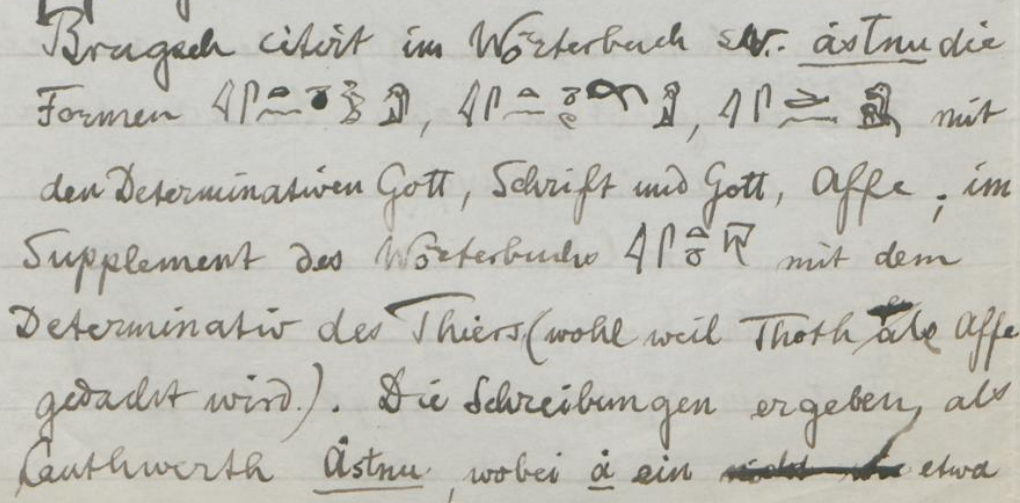 Brugsch citirt im Wörterbuch s.v. ȧstnu die
Formen , , mit
den Determinativen Gott, Schrift und Gott, Affe; im
Supplement des Wörterbuchs mit dem
Determinativ des Thiers (wohl weil Thoth als Affe
gedacht wird.). Die Schreibungen ergeben, als
Lauthwerth Ȧstnu, wobei ȧ ein etwa